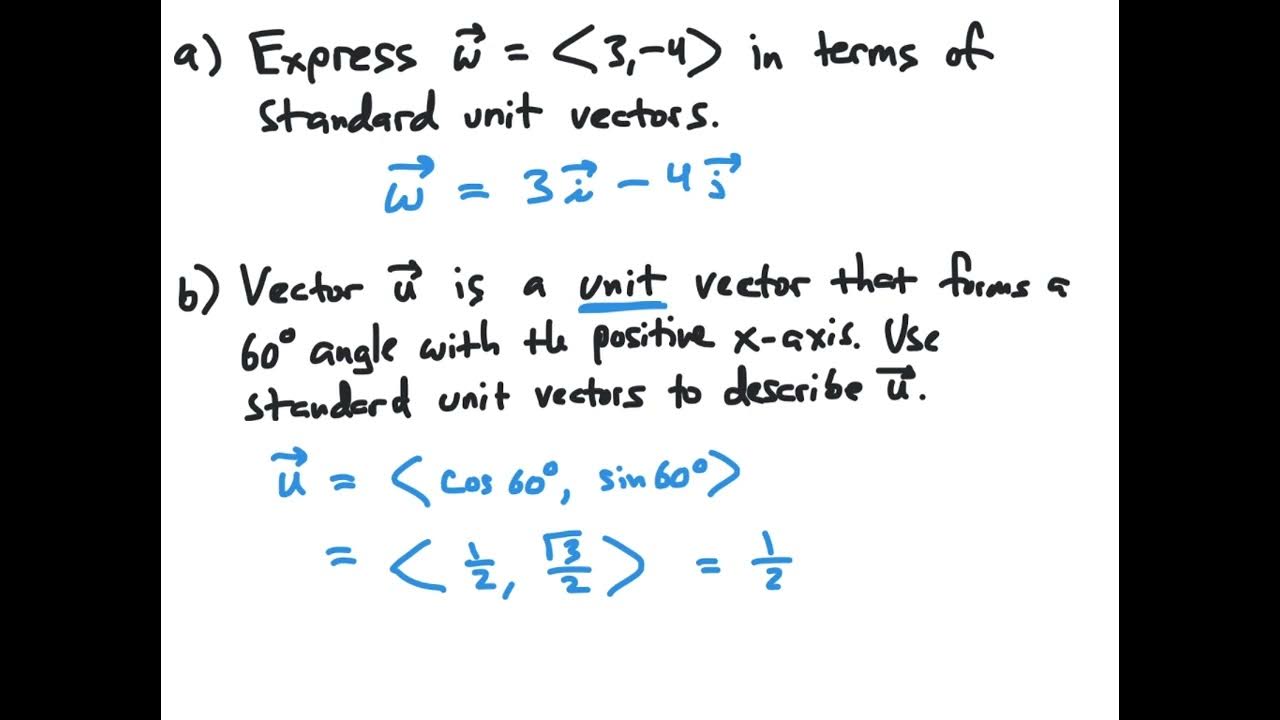 a) Express w⃗ = <3,-4> in terms of
standard unit vectors.
w⃗ = 3i⃗ - 4j⃗
b) Vector u⃗ is a unit vector that forms a
60° angle with the positive x-axis. Use
standard unit vectors to describe u⃗.
u⃗ = <cos 60°, sin 60°>
= <1/2, √3/2> = 1/2